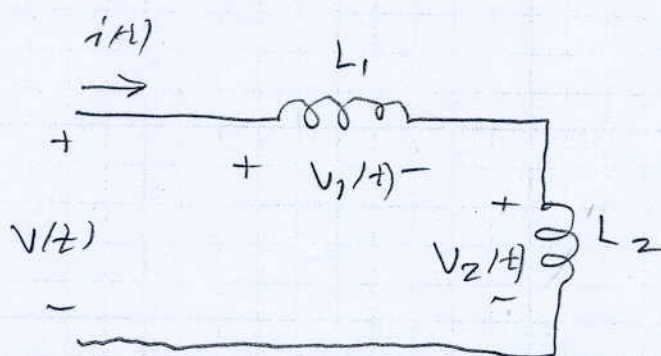 i(t)
L₁
+
+ V₁(t) −
+
V(t)
V₂(t)
L₂
−
−